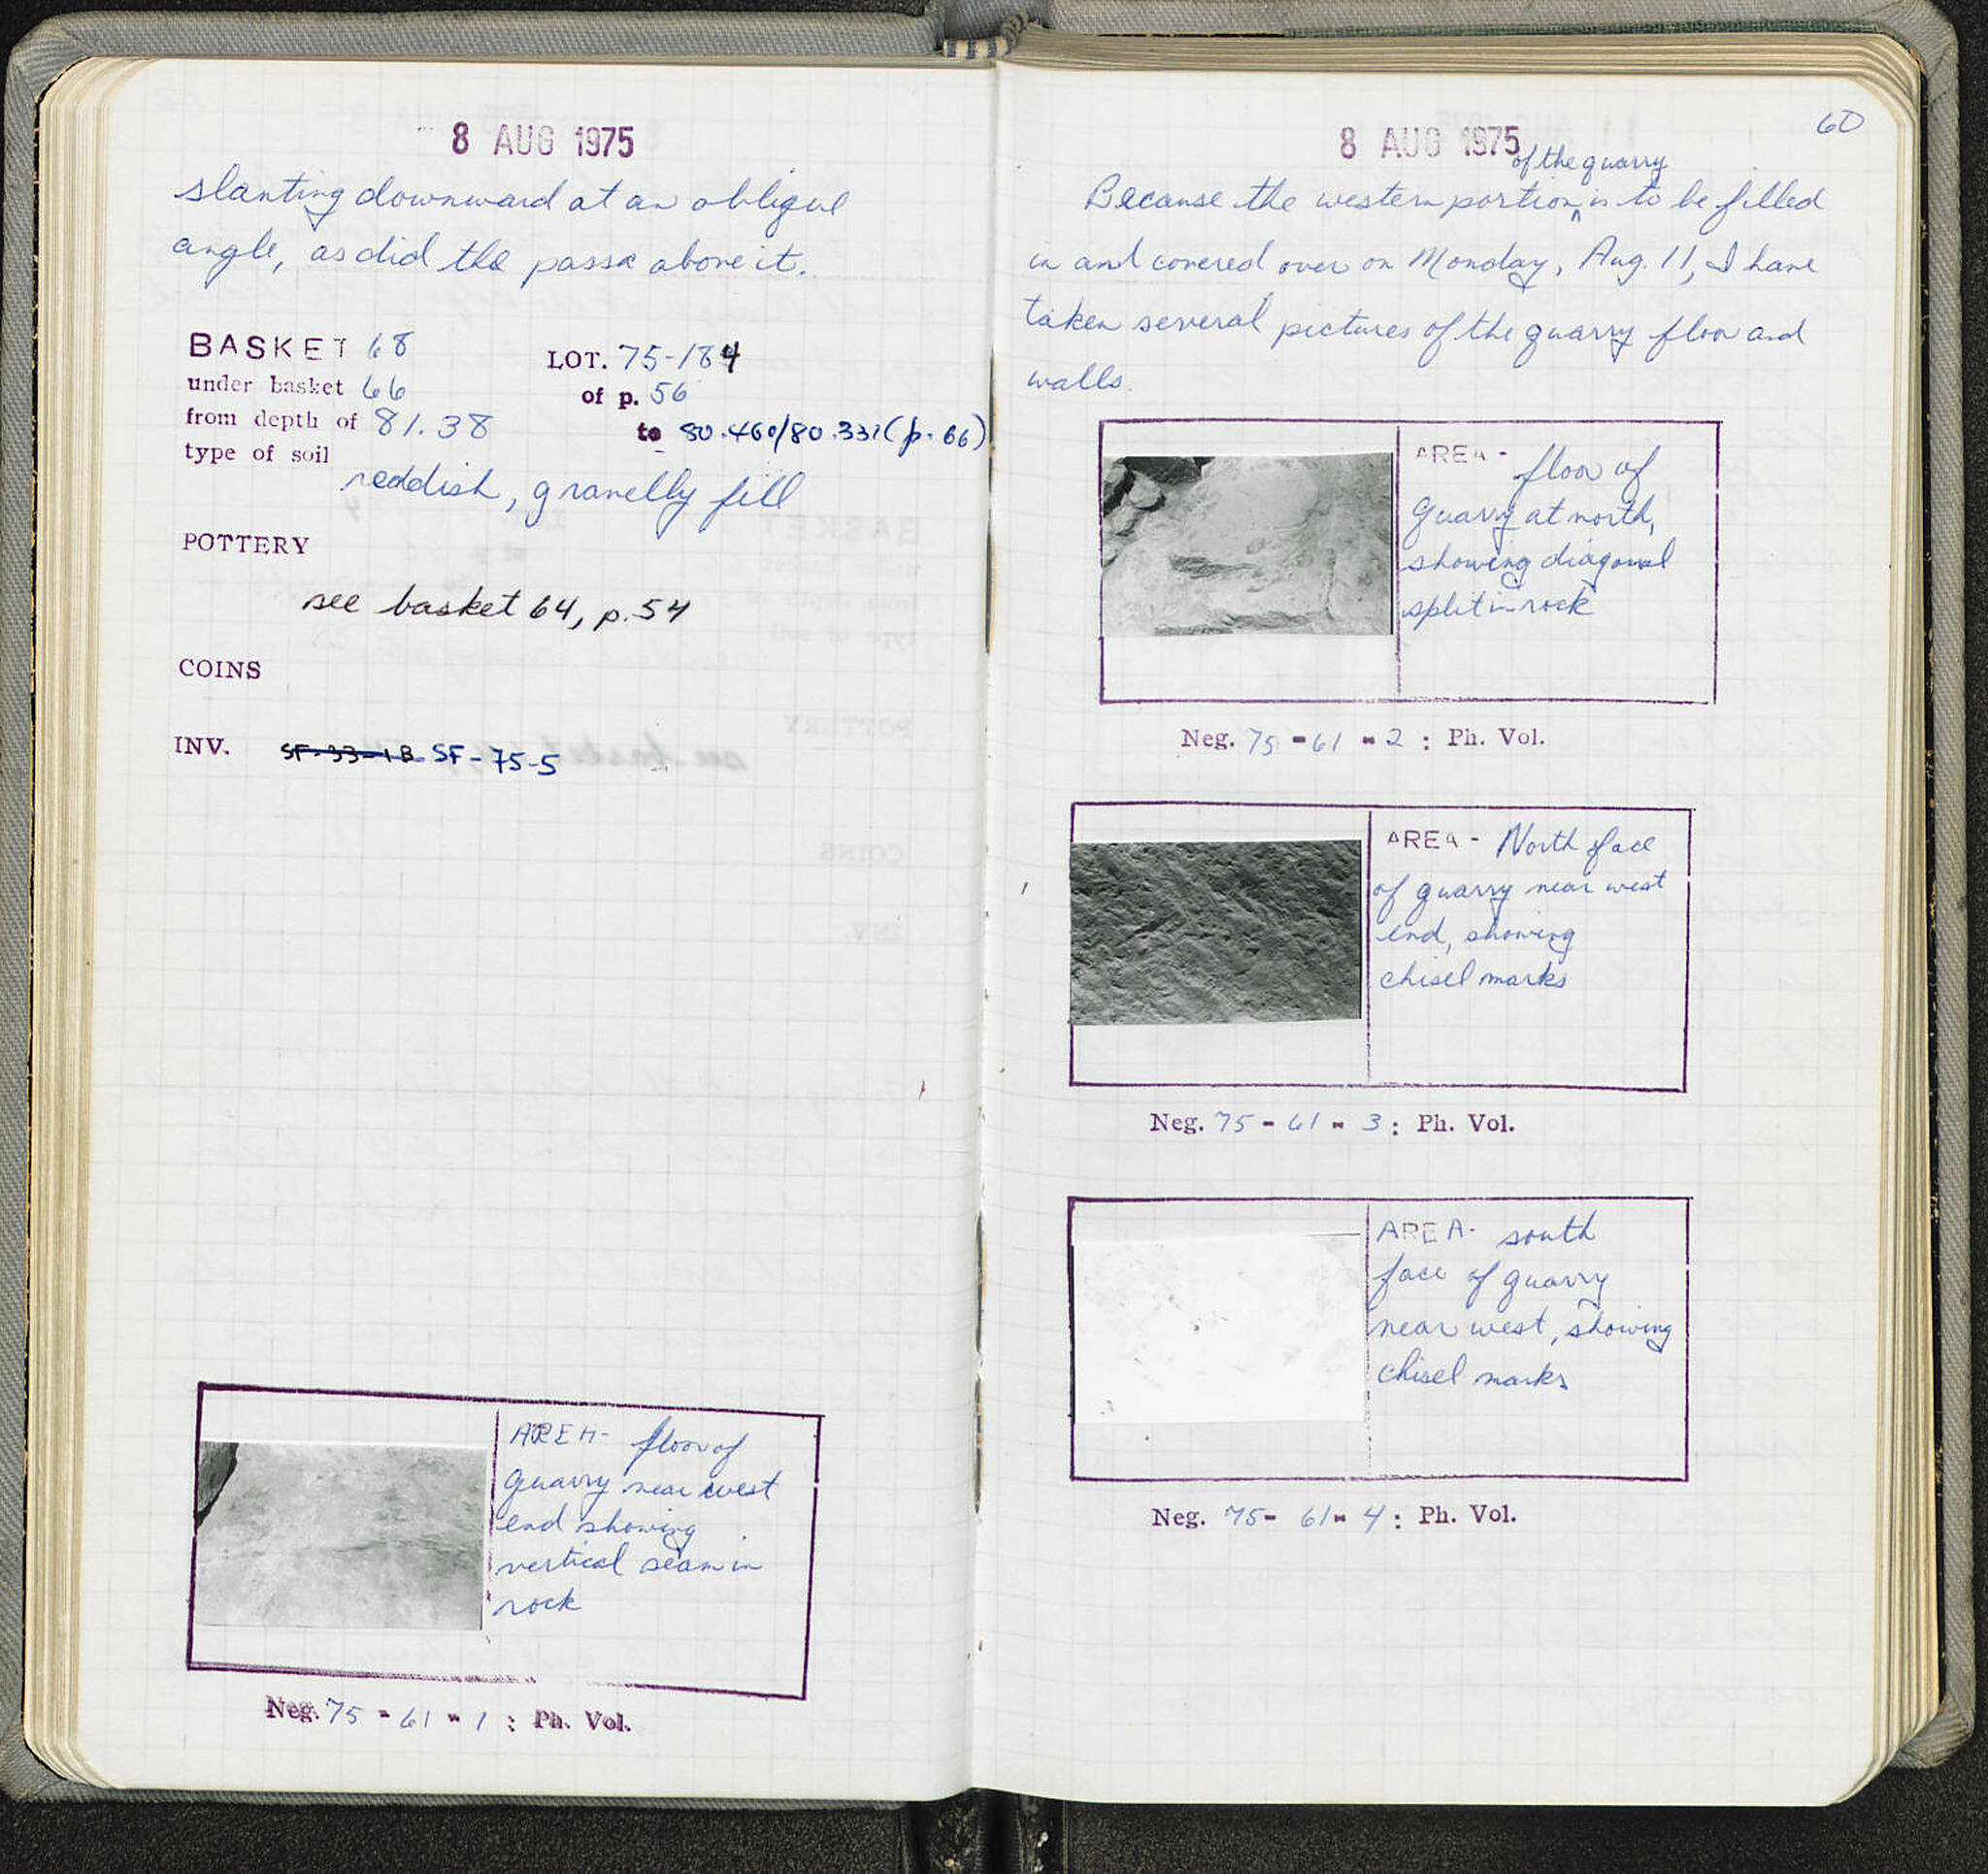 8 AUG 1975
slanting downward at an oblique
angle, as did the passe above it.
BASKET 68
LOT. 75-184
under basket 66
of p. 56
from depth of 81.38
to 80.460/80.331 (p. 66)
type of soil
reddish, gravelly fill
POTTERY
see basket 64, p. 54
COINS
INV. SF-33-1B SF-75-5
AREA- floor of
quarry near west
end showing
vertical seam in
rock
Neg. 75-61-1 : Ph. Vol.
60
8 AUG 1975
of the quarry
Because the western portion is to be filled
in and covered over on Monday, Aug. 11, I have
taken several pictures of the quarry floor and
walls.
AREA- floor of
quarry at north,
showing diagonal
split in rock
Neg. 75-61-2 : Ph. Vol.
AREA- North face
of quarry near west
end, showing
chisel marks
Neg. 75-61-3 : Ph. Vol.
AREA- south
face of quarry
near west, showing
chisel marks
Neg. 75-61-4 : Ph. Vol.